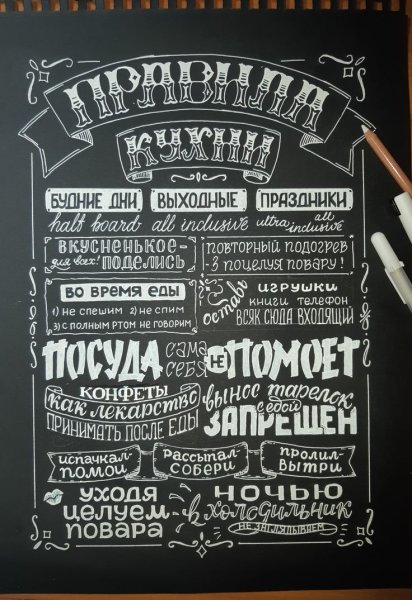 ПРАВИЛА
КУХНИ
БУДНИЕ ДНИ ВЫХОДНЫЕ ПРАЗДНИКИ
half board all inclusive ultra all inclusive
ВКУСНЕНЬКОЕ-
для всех! ПОДЕЛИСЬ
ПОВТОРНЫЙ ПОДОГРЕВ
- 3 ПОЦЕЛУЯ ПОВАРУ!
ВО ВРЕМЯ ЕДЫ
1) НЕ СПЕШИМ 2) НЕ СПИМ
3) С ПОЛНЫМ РТОМ НЕ ГОВОРИМ
оставь ИГРУШКИ
КНИГИ ТЕЛЕФОН
ВСЯК СЮДА ВХОДЯЩИЙ
ПОСУДА САМА СЕБЯ НЕ ПОМОЕТ
КОНФЕТЫ
как лекарство
ПРИНИМАТЬ ПОСЛЕ ЕДЫ
вынос тарелок
с едой
ЗАПРЕЩЕН
ИСПАЧКАЛ-
ПОМОЙ
РАССЫПАЛ-
СОБЕРИ
ПРОЛИЛ-
ВЫТРИ
УХОДЯ
ЦЕЛУЕМ
ПОВАРА
НОЧЬЮ
- в холодильник
НЕ ЗАГЛЯДЫВАЕМ